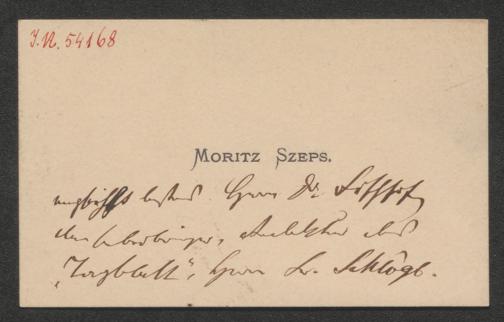 J.N. 54168
MORITZ SZEPS.
empfiehlt bestens Herrn Dr. Fischhof
den Überbringer, Redakteur des
„Tagblatt“, Herrn Fr. Schlögl.